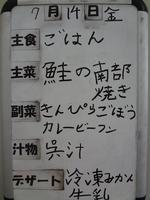 7月14日金
主食 ごはん
主菜 鮭の南部
焼き
副菜 きんぴらごぼう
カレービーフン
汁物 呉汁
デザート 冷凍みかん
牛乳